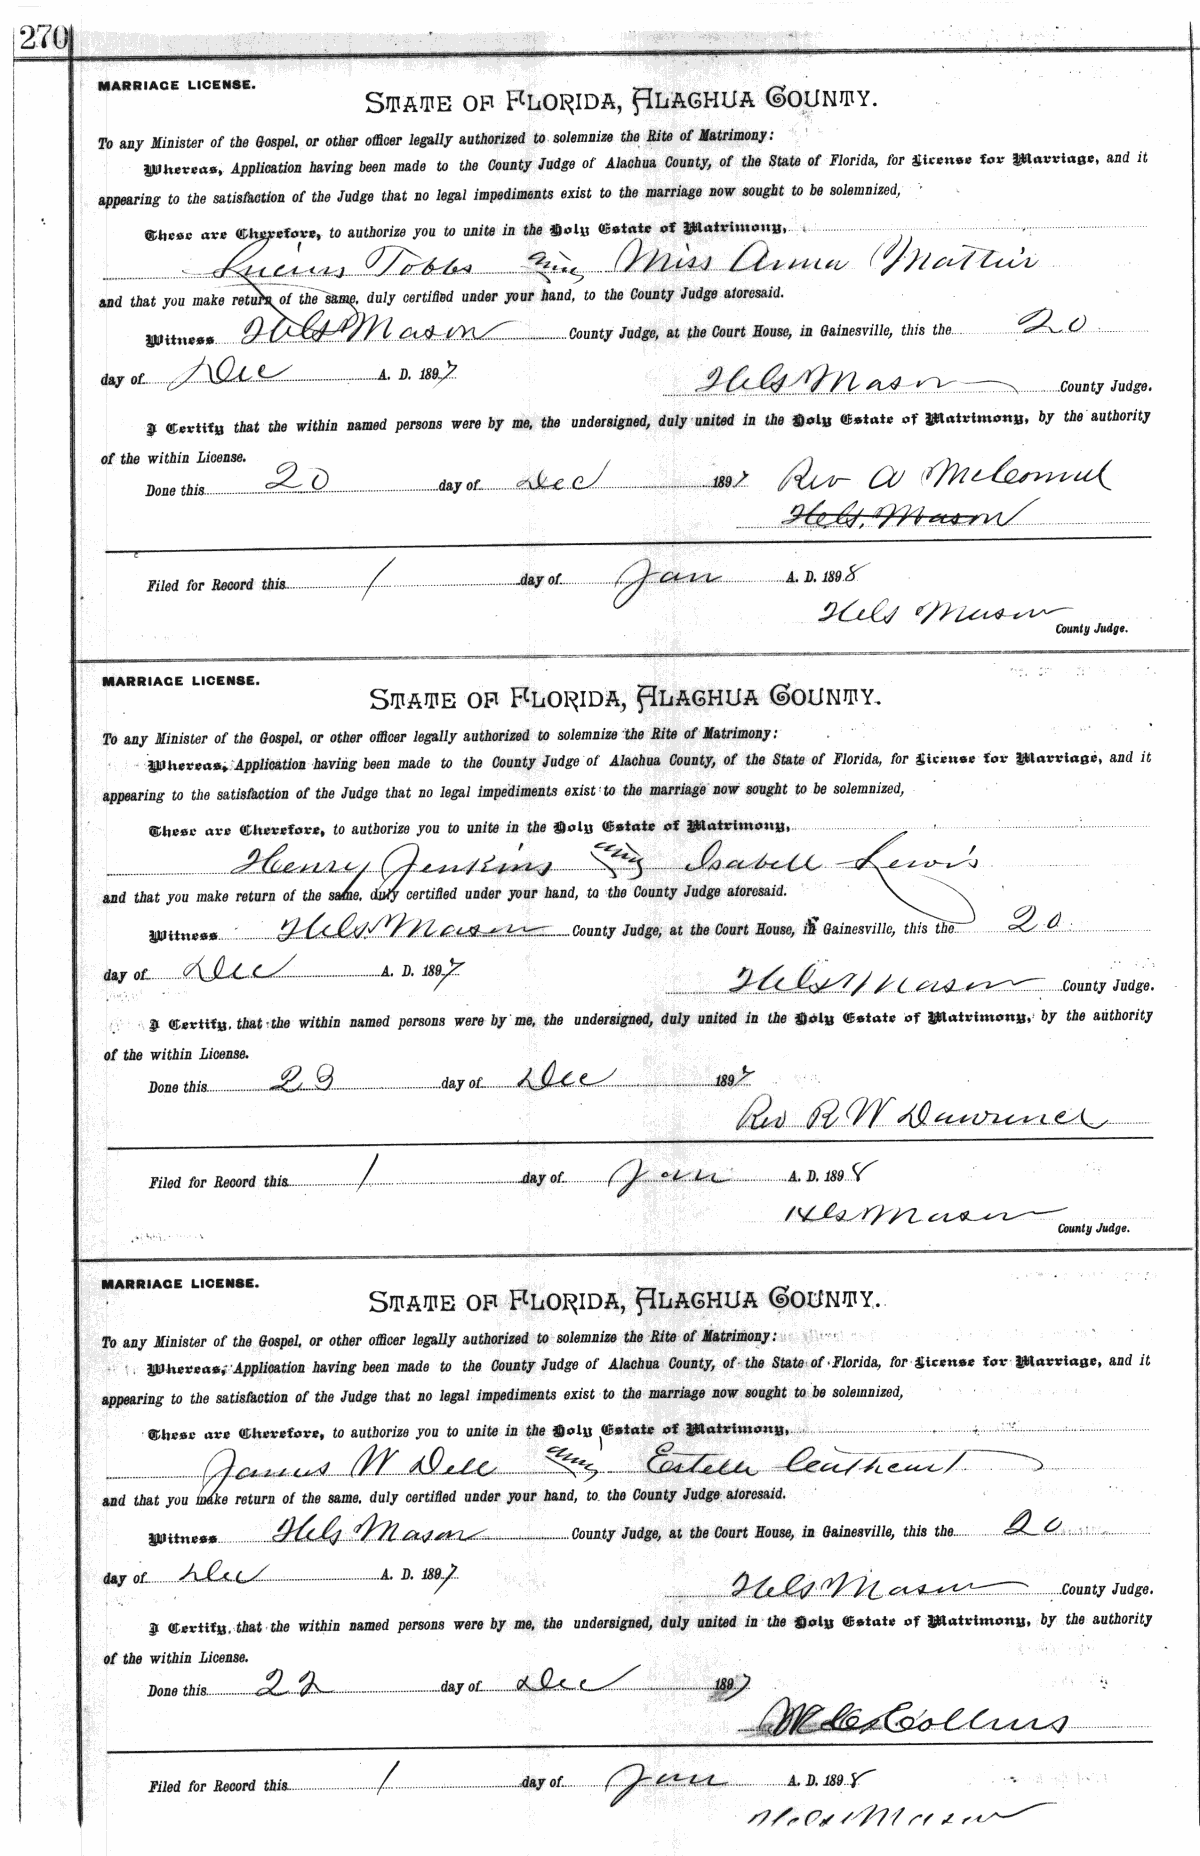 270
MARRIAGE LICENSE.
STATE OF FLORIDA, ALACHUA COUNTY.
To any Minister of the Gospel, or other officer legally authorized to solemnize the Rite of Matrimony:
Whereas, Application having been made to the County Judge of Alachua County, of the State of Florida, for License for Marriage, and it
appearing to the satisfaction of the Judge that no legal impediments exist to the marriage now sought to be solemnized,
These are Therefore, to authorize you to unite in the Holy Estate of Matrimony,
Lucius Tobbs and Miss Anna
and that you make return of the same, duly certified under your hand, to the County Judge aforesaid.
Witness Mason County Judge, at the Court House, in Gainesville, this the 20
day of Dec A. D. 1897
Mason County Judge.
I Certify that the within named persons were by me, the undersigned, duly united in the Holy Estate of Matrimony, by the authority
of the within License.
Done this 20 day of Dec 1897 Rev A
Mason
Filed for Record this 1 day of Jan A. D. 1898
Mason
County Judge.
MARRIAGE LICENSE.
STATE OF FLORIDA, ALACHUA COUNTY.
To any Minister of the Gospel, or other officer legally authorized to solemnize the Rite of Matrimony:
Whereas, Application having been made to the County Judge of Alachua County, of the State of Florida, for License for Marriage, and it
appearing to the satisfaction of the Judge that no legal impediments exist to the marriage now sought to be solemnized,
These are Therefore, to authorize you to unite in the Holy Estate of Matrimony,
Henry Jenkins and Isabell Lewis
and that you make return of the same, duly certified under your hand, to the County Judge aforesaid.
Witness Mason County Judge, at the Court House, in Gainesville, this the 20
day of Dec A. D. 1897
Mason County Judge.
I Certify, that the within named persons were by me, the undersigned, duly united in the Holy Estate of Matrimony, by the authority
of the within License.
Done this 23 day of Dec 1897
Rev R W
Filed for Record this 1 day of Jan A. D. 1898
Mason
County Judge.
MARRIAGE LICENSE.
STATE OF FLORIDA, ALACHUA COUNTY.
To any Minister of the Gospel, or other officer legally authorized to solemnize the Rite of Matrimony:
Whereas, Application having been made to the County Judge of Alachua County, of the State of Florida, for License for Marriage, and it
appearing to the satisfaction of the Judge that no legal impediments exist to the marriage now sought to be solemnized,
These are Therefore, to authorize you to unite in the Holy Estate of Matrimony,
James W Dell and Estelle
and that you make return of the same, duly certified under your hand, to the County Judge aforesaid.
Witness Mason County Judge, at the Court House, in Gainesville, this the 20
day of Dec A. D. 1897
Mason County Judge.
I Certify, that the within named persons were by me, the undersigned, duly united in the Holy Estate of Matrimony, by the authority
of the within License.
Done this 22 day of Dec 1897
Collins
Filed for Record this 1 day of Jan A. D. 1898
Mason